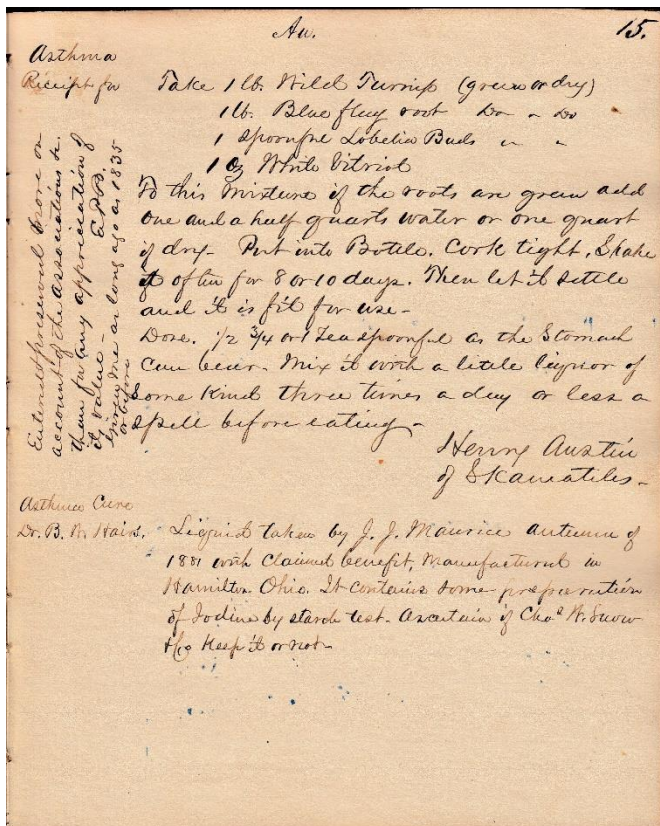 As.
15.
Asthma
Receipt for
Take 1 lb. Wild Turnip (green or dry)
1 lb. Blue flag root Do " Do
1 spoonful Lobelia Buds " "
1 oz White Vitriol
To this mixture if the roots are green add
one and a half quarts water or one quart
if dry - Put into Bottle. Cork tight. Shake
it often for 8 or 10 days. Then let it settle
and it is fit for use -
Dose. 1/2 3/4 or 1 Teaspoonful as the Stomach
can bear - Mix it with a little liquor of
some kind three times a day or less a
spell before eating -
Henry Austin
of Skaneatiles -
Entered & preserved more on
account of the associations &c.
than for any appreciation of
its value - E.P.B.
given me as long ago as 1835
or before
Asthma Cure
Dr. B. W. Hair's.
Liquid taken by J. J. Maurice autumn of
1881 with claimed benefit. Manufactured in
Hamilton Ohio. It contains some preparation
of Iodine by starch test. Ascertain if Chas W. Snow
& Co Keep it or not -